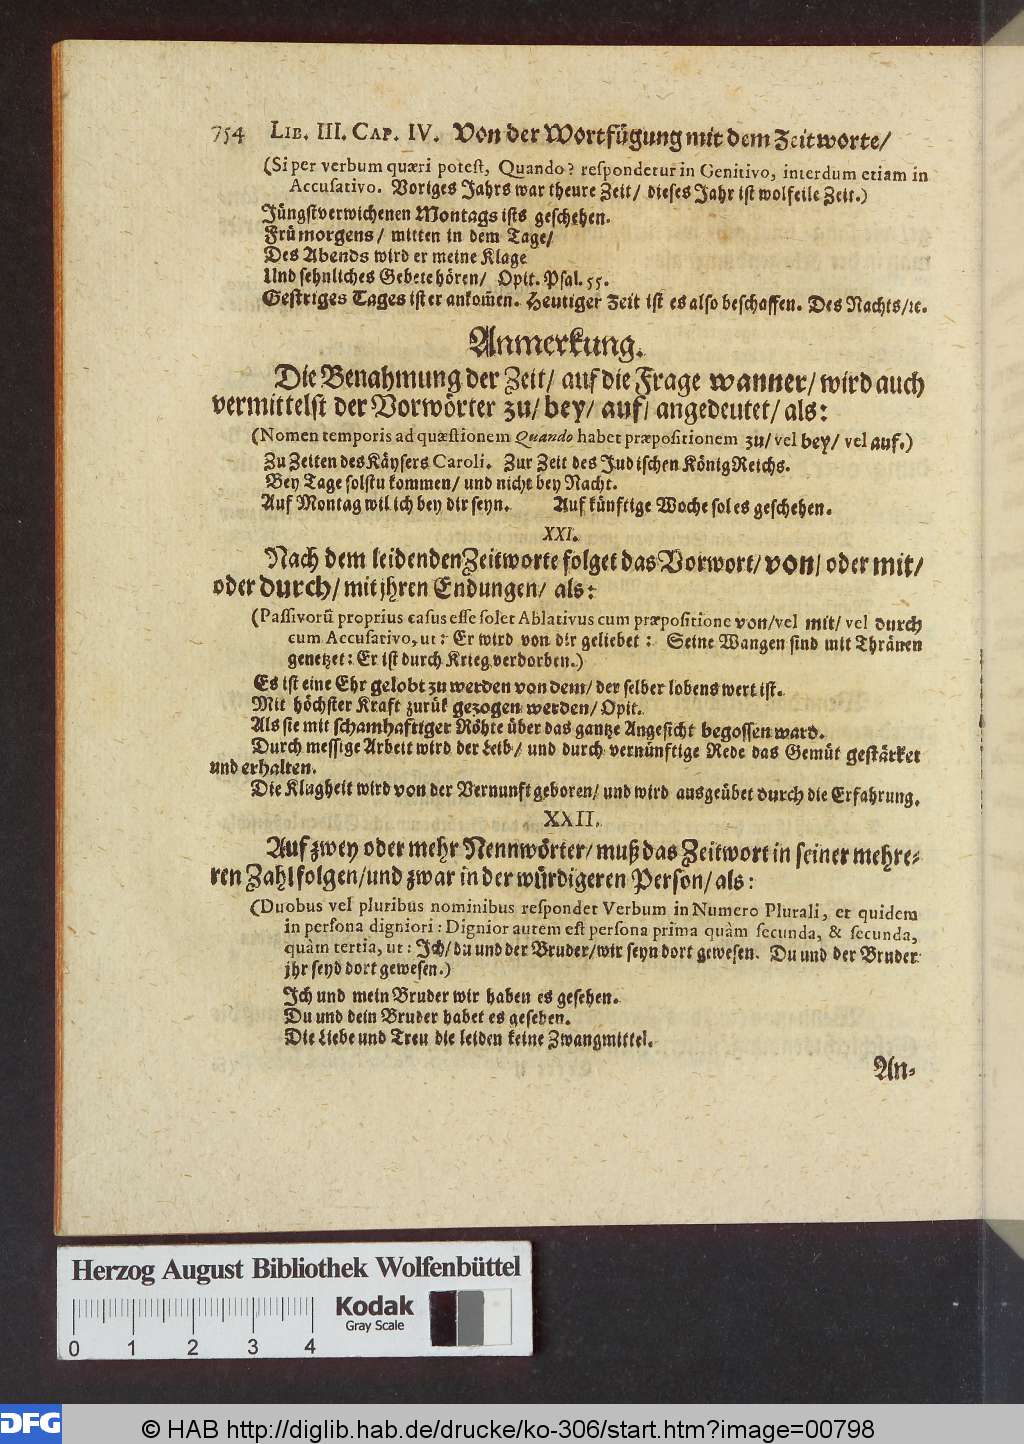 754 LIB. III. CAP. IV. Von der Wortfügung mit dem Zeitworte/
(Si per verbum quæri potest, Quando? respondetur in Genitivo, interdum etiam in
Accusativo. Voriges Jahrs war theure Zeit/ dieses Jahr ist wolfeile Zeit.)
Jüngstverwichenen Montags ists geschehen.
Frümorgens/ mitten in dem Tage/
Des Abends wird er meine Klage
Und sehnliches Gebete hören/ Opit. Psal. 55.
Gestriges Tages ist er ankom̃en. Heutiger Zeit ist es also beschaffen. Des Nachts/ꝛc.
Anmerkung.
Die Benahmung der Zeit/ auf die Frage wanner/ wird auch
vermittelst der Vorwörter zu/ bey/ auf/ angedeutet/ als:
(Nomen temporis ad quæstionem Quando habet præpositionem zu/ vel bey/ vel auf.)
Zu Zeiten des Käysers Caroli. Zur Zeit des Jüdischen KönigReichs.
Bey Tage solstu kommen/ und nicht bey Nacht.
Auf Montag wil ich bey dir seyn. Auf künftige Woche sol es geschehen.
XXI.
Nach dem leidenden Zeitworte folget das Vorwort/ von/ oder mit/
oder durch/ mit jhren Endungen/ als:
(Passivorũ proprius casus esse solet Ablativus cum præpositione von/ vel mit/ vel durch
cum Accusativo, ut: Er wird von dir geliebet: Seine Wangen sind mit Thränen
genetzet: Er ist durch Krieg verdorben.)
Es ist eine Ehr gelobt zu werden von dem/ der selber lobens wert ist.
Mit höchster Kraft zurük gezogen werden/ Opit.
Als sie mit schamhaftiger Röhte über das gantze Angesicht begossen ward.
Durch messige Arbeit wird der Leib/ und durch vernünftige Rede das Gemüt gestärket
und erhalten.
Die Klugheit wird von der Vernunft geboren/ und wird ausgeübet durch die Erfahrung.
XXII.
Auf zwey oder mehr Nennwörter/ muß das Zeitwort in seiner mehre-
ren Zahl folgen/ und zwar in der würdigeren Person/ als:
(Duobus vel pluribus nominibus respondet Verbum in Numero Plurali, et quidem
in persona digniori: Dignior autem est persona prima quàm secunda, & secunda,
quàm tertia, ut: Ich/ du und der Bruder/ wir seyn dort gewesen. Du und der Bruder
jhr seyd dort gewesen.)
Ich und mein Bruder wir haben es gesehen.
Du und dein Bruder habet es gesehen.
Die Liebe und Treu die leiden keine Zwangmittel.
An-
Herzog August Bibliothek Wolfenbüttel
Kodak
Gray Scale
0 1 2 3 4
DFG
© HAB http://diglib.hab.de/drucke/ko-306/start.htm?image=00798